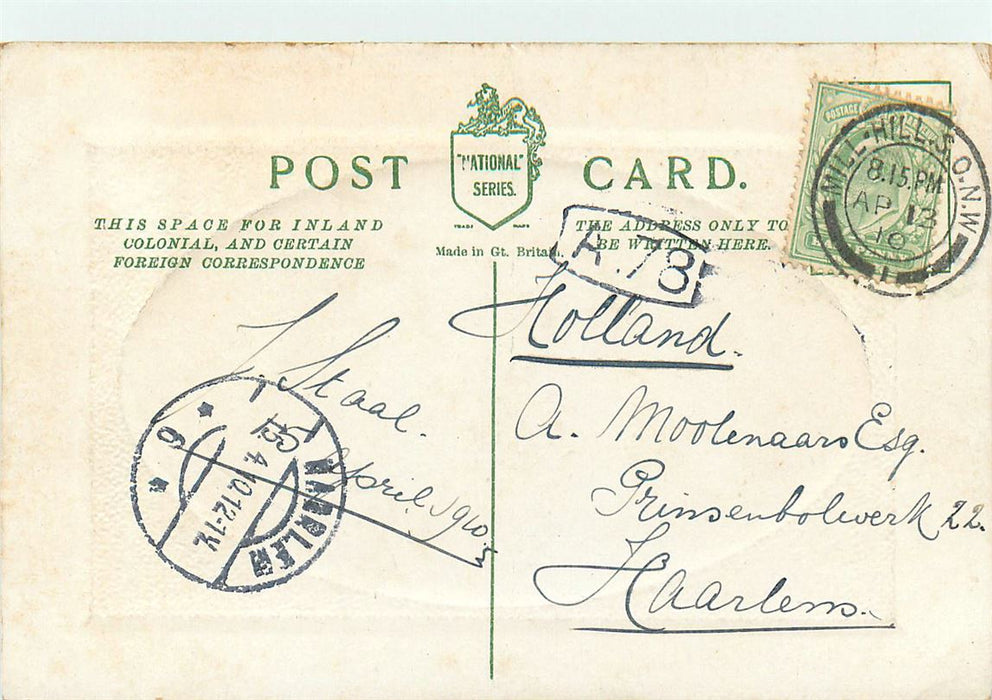 POST CARD.
"NATIONAL"
SERIES.
TRADE MARK
Made in Gt. Britain.
THIS SPACE FOR INLAND
COLONIAL, AND CERTAIN
FOREIGN CORRESPONDENCE
THE ADDRESS ONLY TO
BE WRITTEN HERE.
POSTAGE
MILL-HILL.S.O.N.W
8.15.PM
AP 13
10
1
.78
Holland.
A. Moolenaars Esq.
Prinsenbolwerk 22.
Haarlem.
J. Staal.
April 1910.
HAARLEM
4.10.12-1V.
6